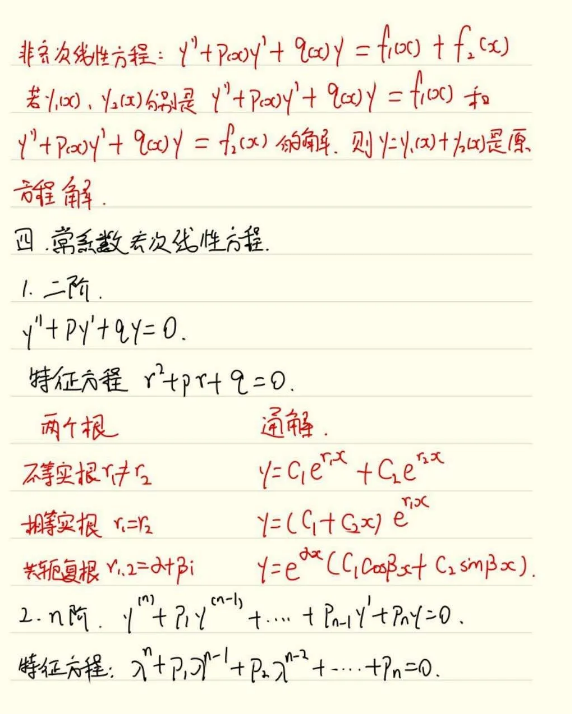 非齐次线性方程: y''+p(x)y'+q(x)y=f₁(x)+f₂(x)
若y₁(x)、y₂(x)分别是 y''+p(x)y'+q(x)y=f₁(x) 和
y''+p(x)y'+q(x)y=f₂(x) 的解. 则y=y₁(x)+y₂(x)是原
方程解.
四.常系数齐次线性方程.
1. 二阶.
y''+py'+qy=0.
特征方程 r²+pr+q=0.
两个根 通解.
不等实根r₁≠r₂ y=C₁e^{r₁x}+C₂e^{r₂x}
相等实根 r₁=r₂ y=(C₁+C₂x)e^{r₁x}
共轭复根 r₁,₂=α+βi y=e^{αx}(C₁cosβx+C₂sinβx).
2. n阶. y^{(n)}+p₁y^{(n-1)}+····+pₙ₋₁y'+pₙy=0.
特征方程: λ^n+p₁λ^{n-1}+p₂λ^{n-2}+····+pₙ=0.